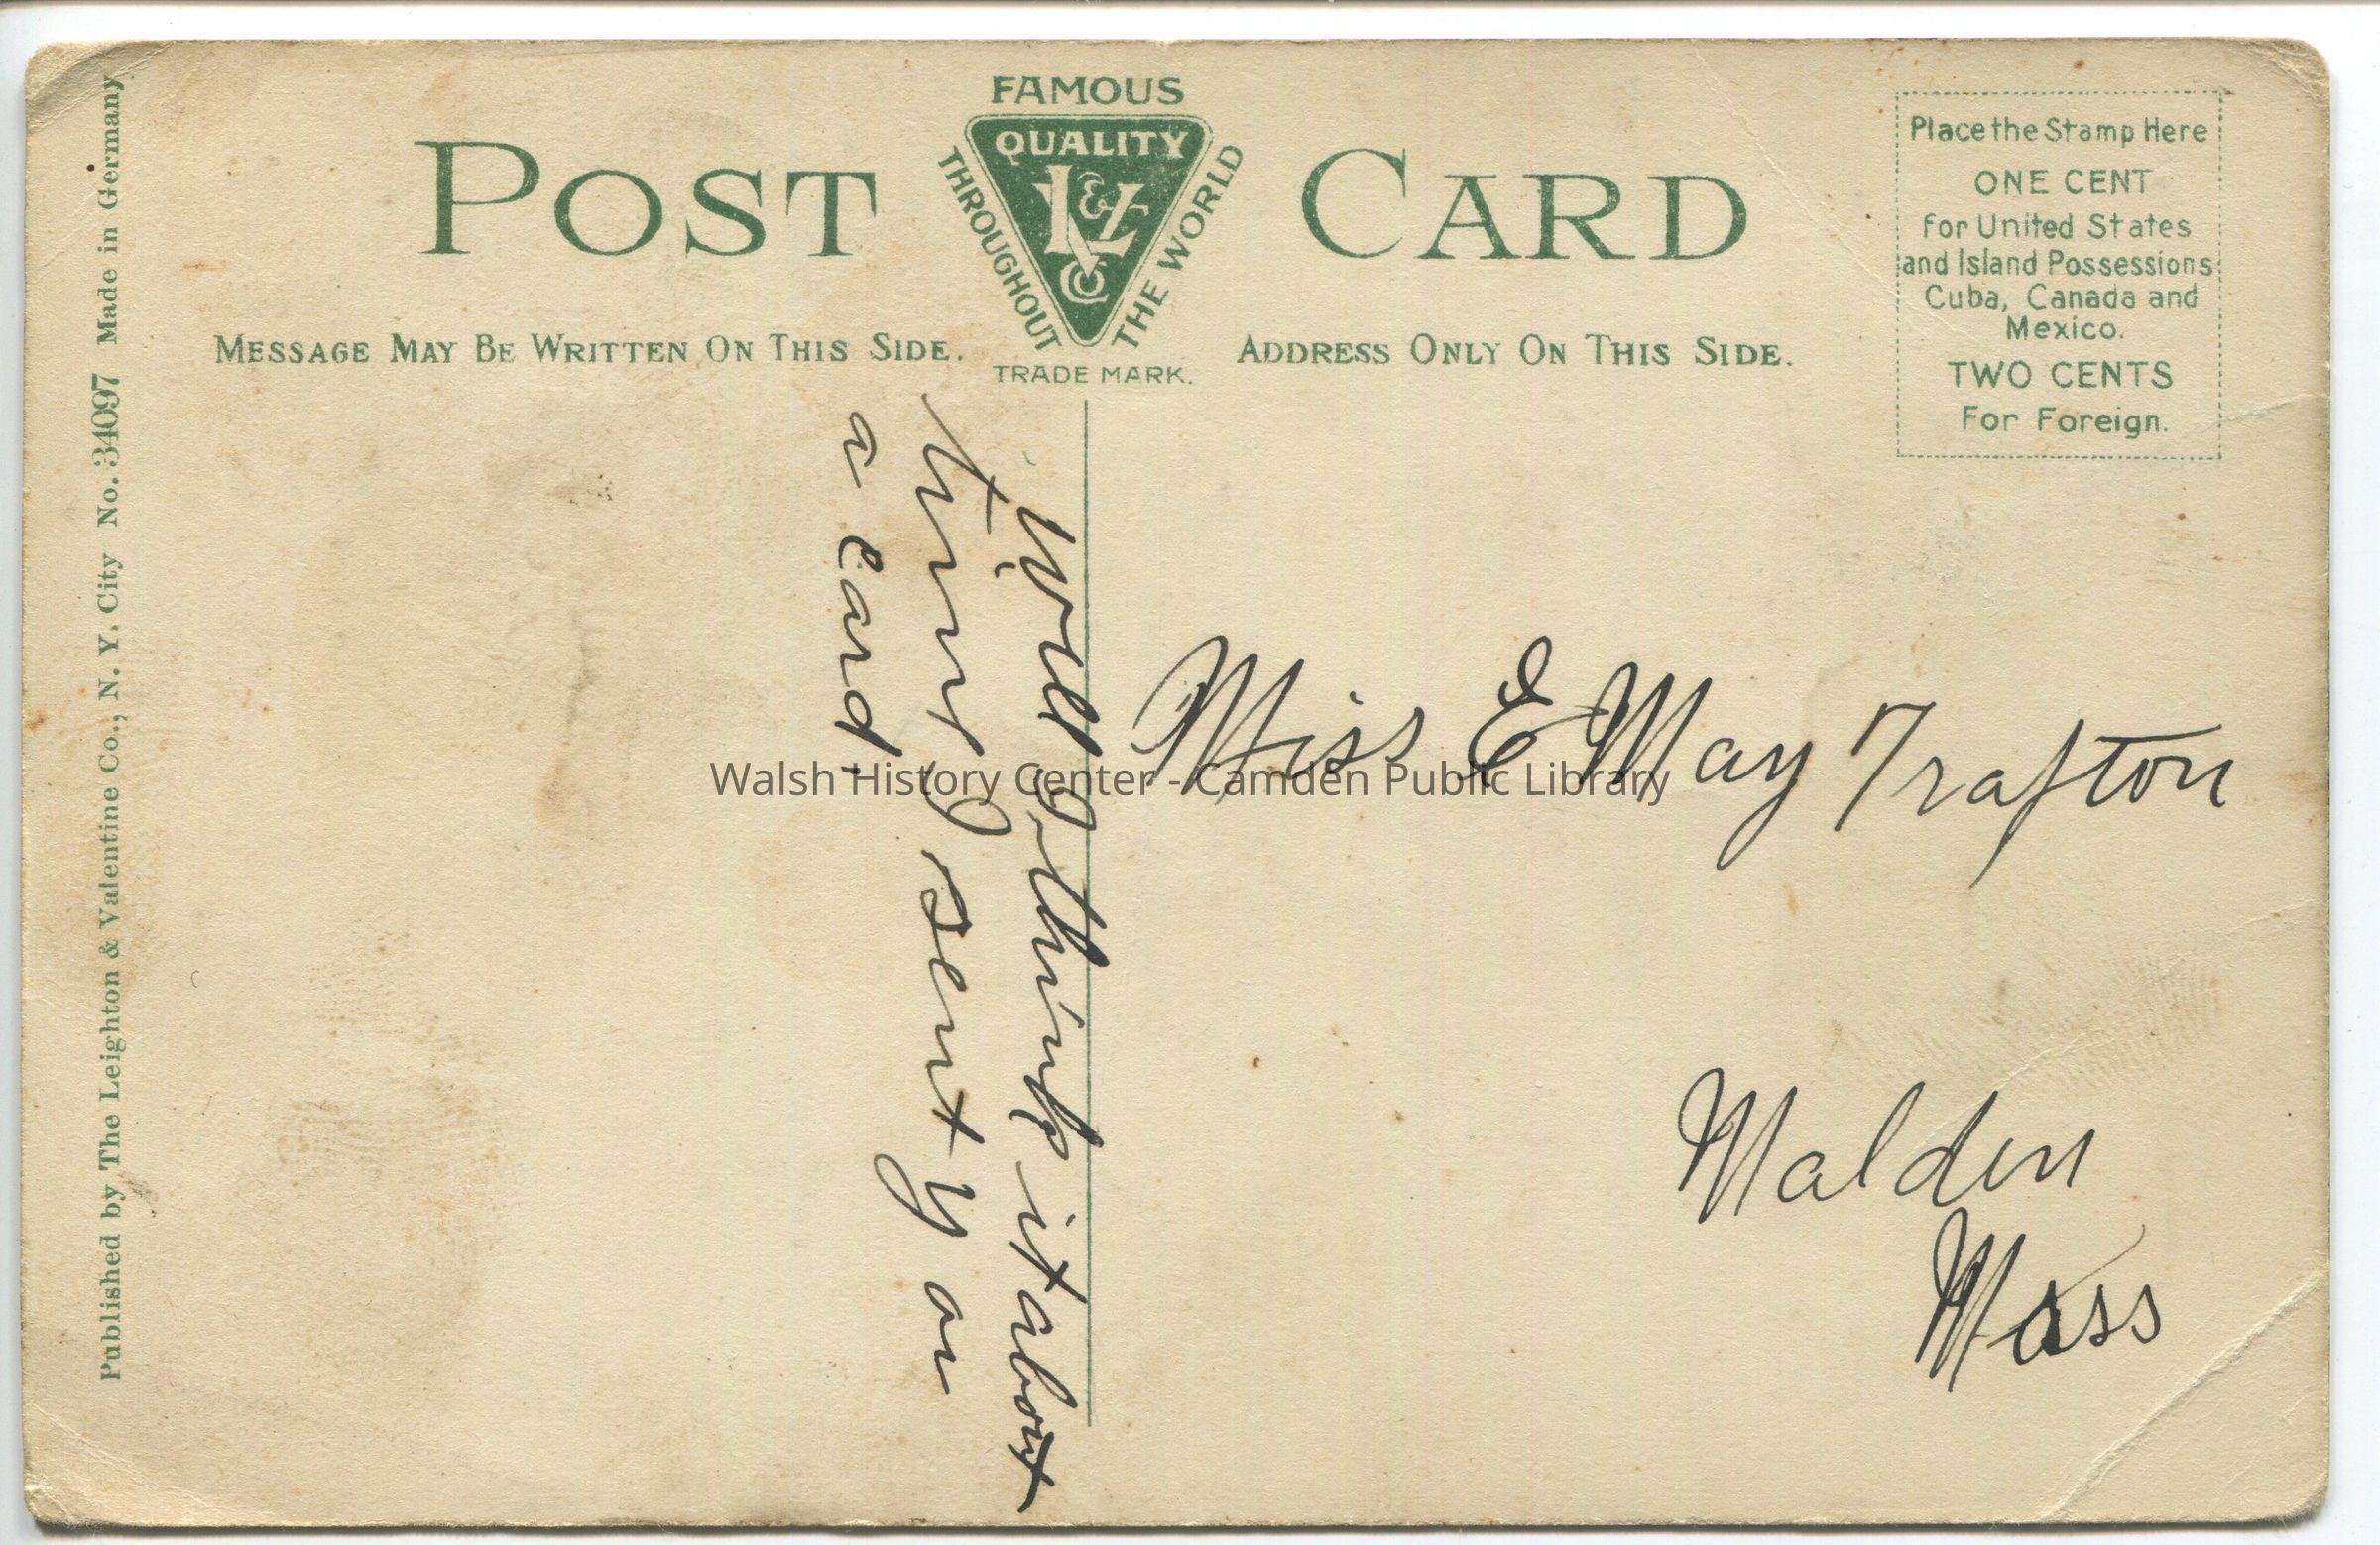 FAMOUS
QUALITY
L&V
Co
THROUGHOUT THE WORLD
TRADE MARK.
POST CARD
MESSAGE MAY BE WRITTEN ON THIS SIDE.
ADDRESS ONLY ON THIS SIDE.
Place the Stamp Here
ONE CENT
For United States
and Island Possessions
Cuba, Canada and
Mexico.
TWO CENTS
For Foreign.
Published by The Leighton & Valentine Co., N. Y. City No. 34097 Made in Germany
Well I think it about
time I sent y ou
a card.
Miss E May Trafton
Malden
Mass
Walsh History Center - Camden Public Library